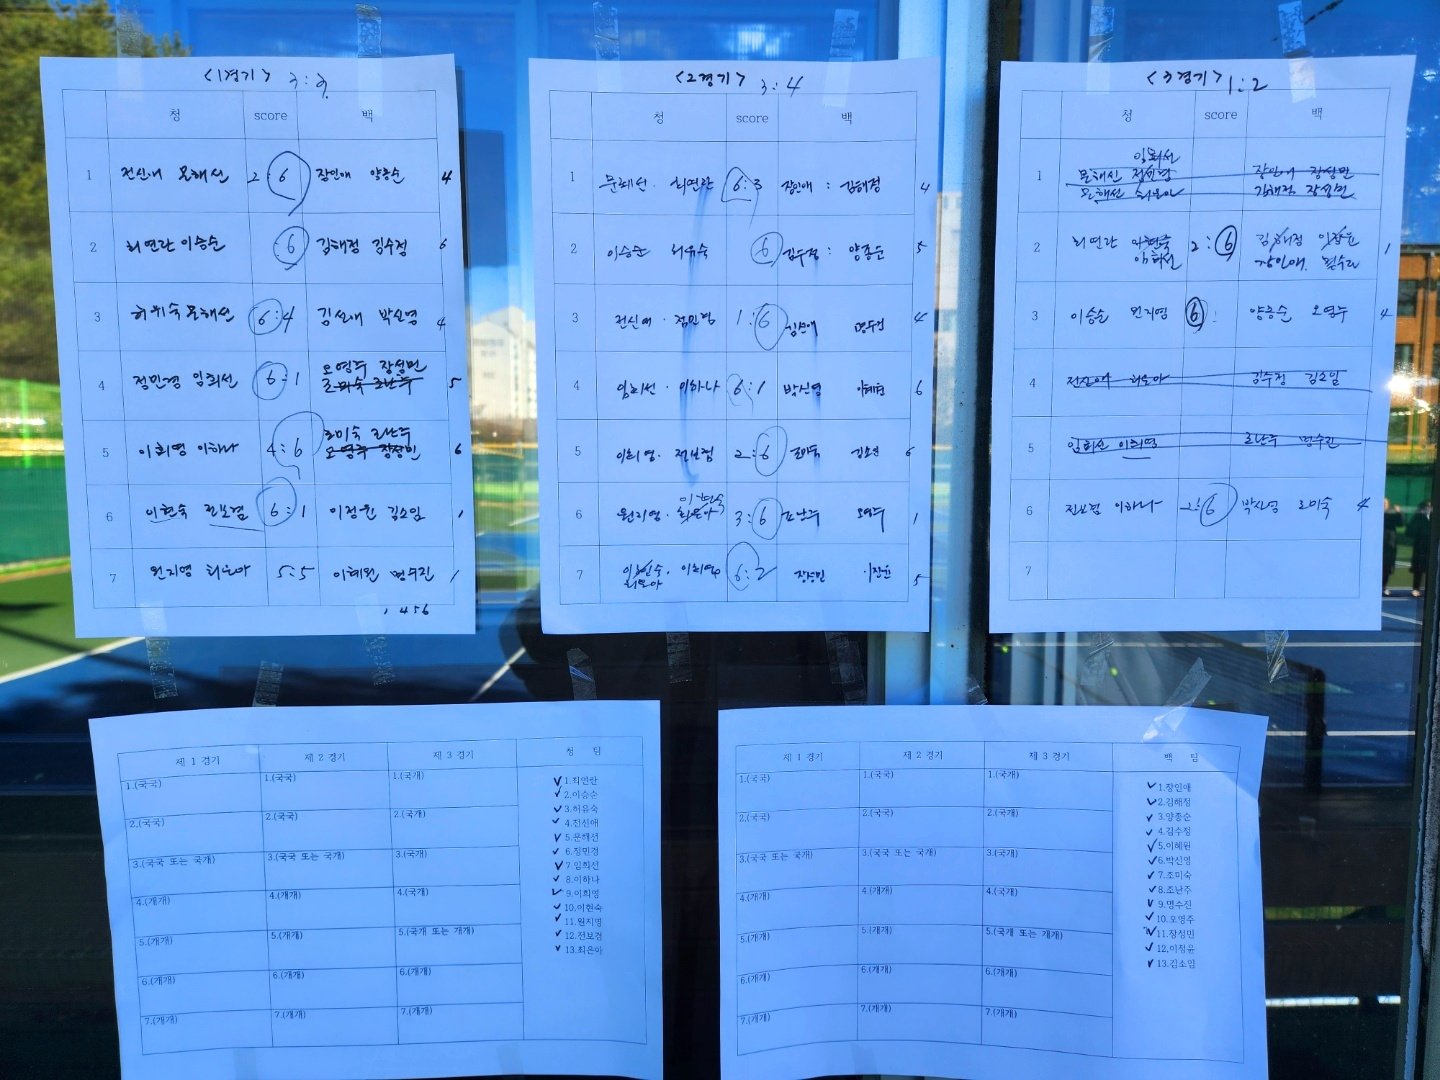 <1경기> 3:3.
청 score 백
1 전신애 문해선 2:6 장인애 양종순 4
2 최연란 이승순 :6 김해정 김수정 6
3 허유숙 문해선 6:4 김선애 박신영 4
4 정민경 임희선 6:1 오영주 장성민 5
조미숙 조난주
5 이희영 이하나 4:6 조미숙 조난주 6
오영주 장성민
6 이현숙 전보검 6:1 이정윤 김소임 1
7 원지영 최은아 5:5 이혜원 명수진 1
1 4 5 6
<2경기> 3:4
청 score 백
1 문해선 · 최연란 6:3 장인애 : 김해정 4
2 이승순 허유숙 6 김수정 : 양종순 5
3 전신애 · 정민경 1:6 명수진 4
4 임희선 · 이하나 6:1 박신영 이혜원 6
5 이희영 · 전보검 2:6 조미숙 김소임 6
이현숙
6 원지영 · 최은아 3:6 조난주 오영주 1
7 이현숙 · 이희영 6:2 장성민 이정윤 5
최은아
<3경기> 1:2
청 score 백
임희선
1 문해선 정민경 장인애 장성민
문해선 최은아 김해정 장성민
2 최연란 이현숙 2:6 김해정 이정윤 1
임희선 장인애 명수진
3 이승순 원지영 6: 양종순 오영주 4
4 전신애 최은아 김수정 김소임
5 임희선 이희영 조난주 명수진
6 전보검 이하나 2:6 박신영 조미숙 4
7
제 1 경기 제 2 경기 제 3 경기 청 팀
1.(국국) 1.(국국) 1.(국개)
2.(국국) 2.(국국) 2.(국개)
3.(국국 또는 국개) 3.(국국 또는 국개) 3.(국개)
4.(개개) 4.(개개) 4.(국개)
5.(개개) 5.(개개) 5.(국개 또는 개개)
6.(개개) 6.(개개) 6.(개개)
7.(개개) 7.(개개) 7.(개개)
1.최연란
2.이승순
3.허유숙
4.전신애
5.문해선
6.정민경
7.임희선
8.이하나
9.이희영
10.이현숙
11.원지영
12.전보검
13.최은아
제 1 경기 제 2 경기 제 3 경기 백 팀
1.(국국) 1.(국국) 1.(국개)
2.(국국) 2.(국국) 2.(국개)
3.(국국 또는 국개) 3.(국국 또는 국개) 3.(국개)
4.(개개) 4.(개개) 4.(국개)
5.(개개) 5.(개개) 5.(국개 또는 개개)
6.(개개) 6.(개개) 6.(개개)
7.(개개) 7.(개개) 7.(개개)
1.장인애
2.김해정
3.양종순
4.김수정
5.이혜원
6.박신영
7.조미숙
8.조난주
9.명수진
10.오영주
11.장성민
12.이정윤
13.김소임